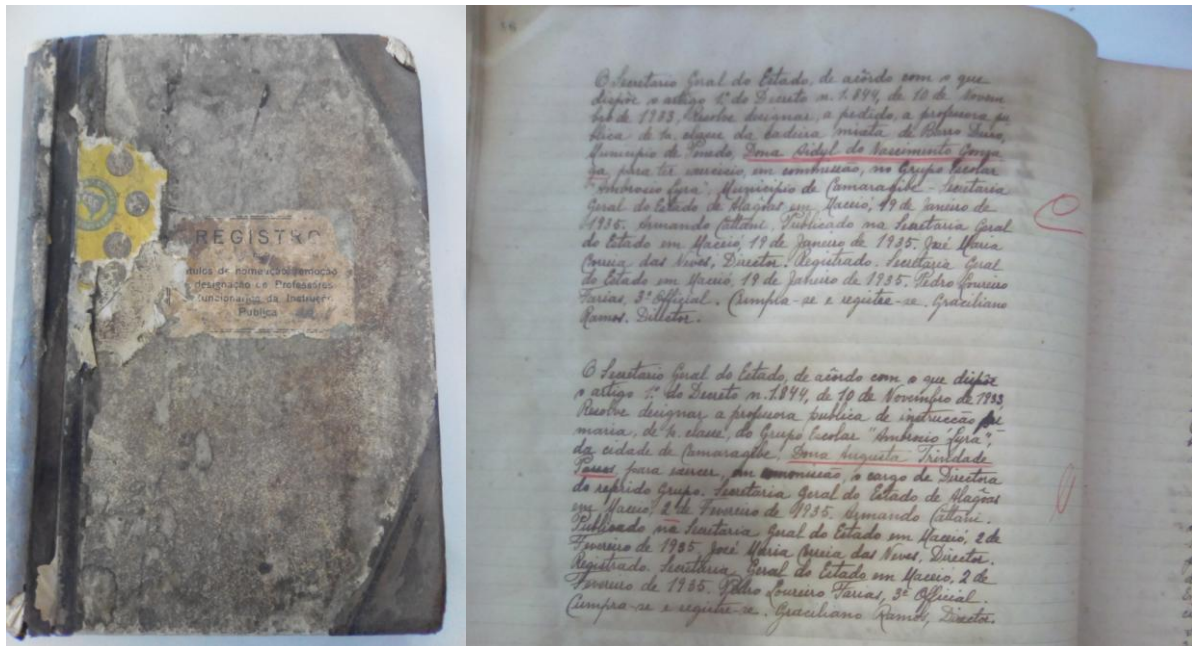 REGISTRO
titulos de nomeação, remoção
designação de Professores
funcionarios da Instrucção
Publica
O Secretario Geral do Estado, de acôrdo com o que
dispõe o artigo 1º do Decreto n. 1.844, de 10 de Novem
bro de 1933, Resolve designar, a pedido, a professora pu
blica de 1a. classe da cadeira mixta de Barro Duro,
Municipio de Penedo, Dona Sidyl do Nascimento Gonza
ga, para ter exercicio, em commissão, no Grupo Escolar
"Ambrosio Lyra", Municipio de Camaragibe - Secretaria
Geral do Estado de Alagôas em Maceió, 19 de Janeiro de
1935. Armando Cattani. Publicado na Secretaria Geral
do Estado em Maceió, 19 de Janeiro de 1935. José Maria
Correia das Neves, Director. Registrado. Secretaria Geral
do Estado em Maceió, 19 de Janeiro de 1935. Pedro Loureiro
Farias, 3º Official. Cumpra-se e registre-se. Graciliano
Ramos. Director.
O Secretario Geral do Estado, de acôrdo com o que dispõe
o artigo 1º do Decreto n. 1.844, de 10 de Novembro de 1933,
Resolve designar a professora publica de instrucção pri
maria, de 1a. classe, do Grupo Escolar "Ambrosio Lyra",
da cidade de Camaragibe, Dona Augusta Trindade
Passos, para exercer, em commissão, o cargo de Directora
do referido Grupo. Secretaria Geral do Estado de Alagôas
em Maceió, 2 de Fevereiro de 1935. Armando Cattani.
Publicado na Secretaria Geral do Estado em Maceió, 2 de
Fevereiro de 1935. José Maria Correia das Neves. Director.
Registrado. Secretaria Geral do Estado em Maceió, 2 de
Fevereiro de 1935. Pedro Loureiro Farias, 3º Official.
Cumpra-se e registre-se. Graciliano Ramos, Director.